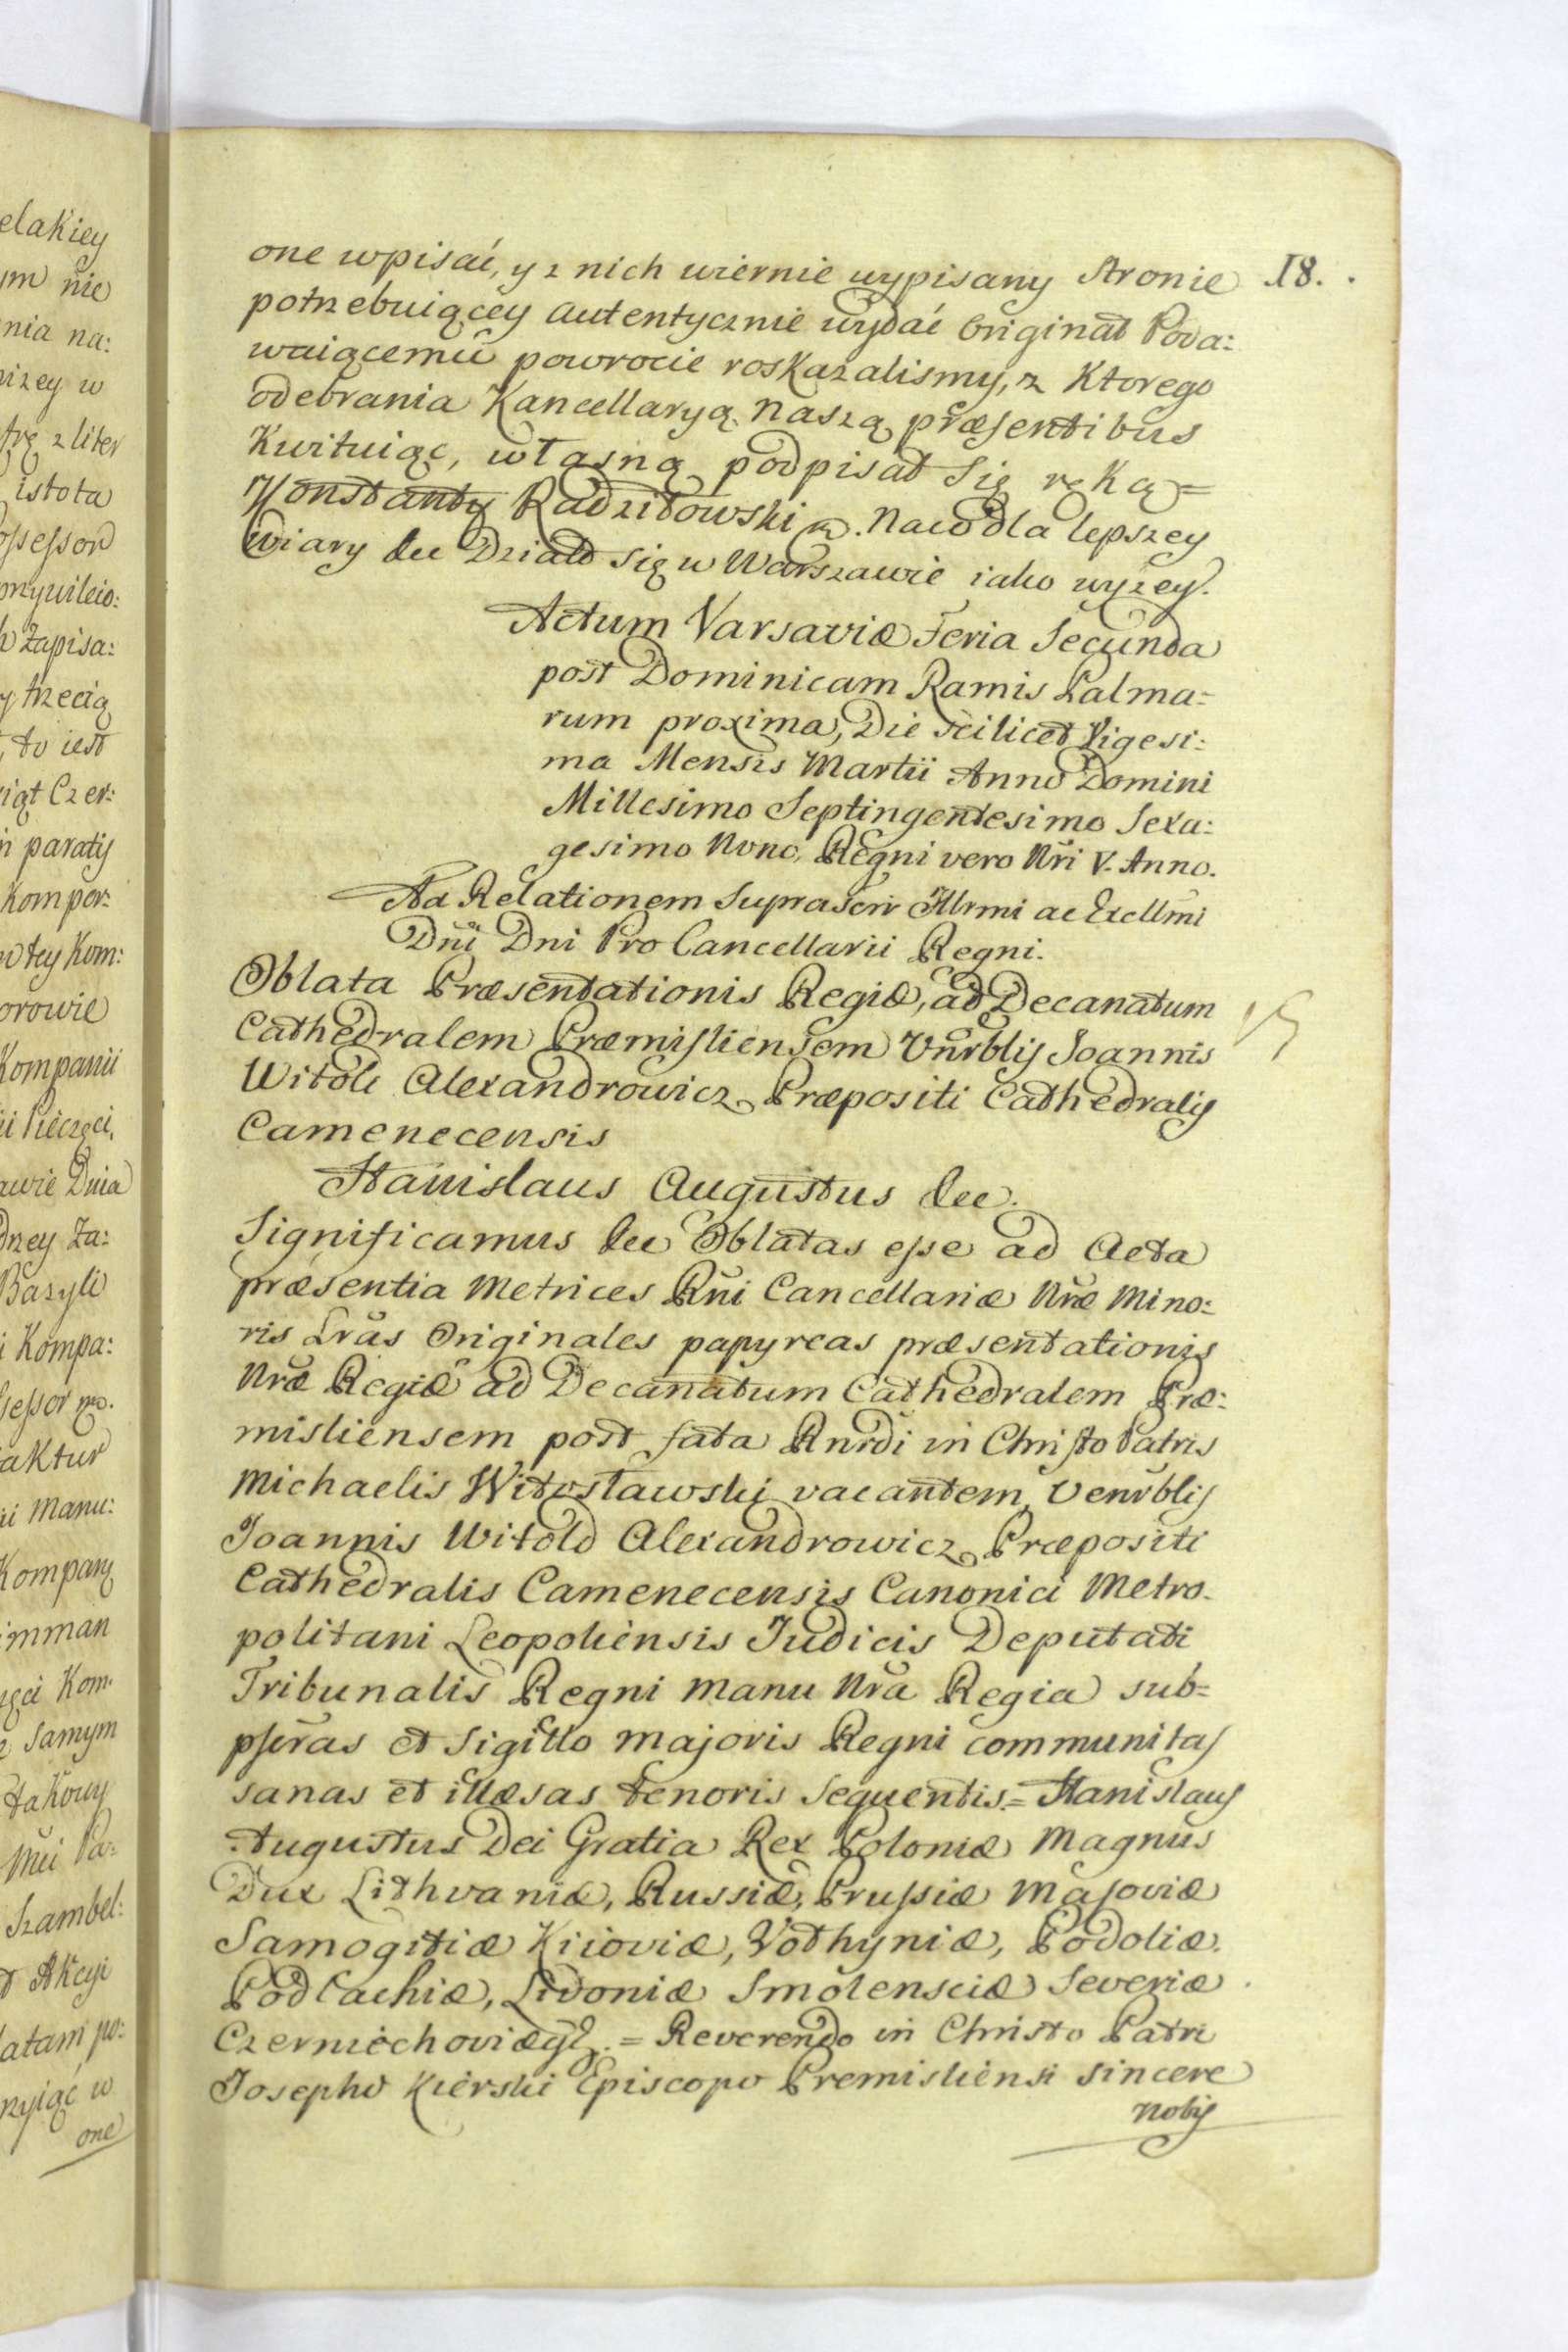 elakiey
ym nie
nia na:
niżey w
trę z liter
istota
ossessor
przywileio:
Zapisa:
y trzecią
to iest
iąt Czer:
n paratis
Kompor:
w tey Kom:
orowie
Kompanii
ii Pieczęci,
awie Dnia
dney Za:
Bazyli
i Kompa:
sessor mp.
aktur
ii Manu:
Kompanij
imman
ęci Kom.
z samym
takowy
Mći Pa:
Szambel:
Akcyi
latam po:
rzyiąć w
one
18.
one wpisać, y z nich wiernie wypisany Stronie
potrzebuiącey autentycznie wydać Originał Poda:
waiącemu powrocie roskazalismy, z Ktorego
odebrania Kancellaryą Naszą præsentibus
Kwituiąc, własną podpisał Się ręKą =
Konstanty Radziłowski mp. Naco dla lepszey
Wiary &c Działo się w Warszawie iako wyżey.
Actum Varsaviæ Feria Secunda
post Dominicam Ramis Palma:
rum proxima, Die scilicet Vigesi:
ma Mensis Martii Anno Domini
Millesimo Septingentesimo Sexa:
gesimo Nono, Regni vero Nri V. Anno.
Ad Relationem Suprascri Illrmi ac Excllmi
Dni Dni Pro Cancellarii Regni.
Oblata Præsentationis Regiæ, ad Decanatum
Cathedralem Præmisliensem Vnrblis Joannis
Witold Alexandrowicz Præpositi Cathedralis
Camenecensis
Stanislaus Augustus &c.
Significamus &c Oblatas esse ad Acta
præsentia Metrices Rni Cancellariæ Nræ Mino:
ris Lras Originales papyreas præsentationis
Nræ Regiæ ad Decanatum Cathedralem Præ:
misliensem post fata Rnrdi in Christo Patris
Michaelis Witosławski vacantem, Venrblis
Joannis Witold Alexandrowicz Præpositi
Cathedralis Camenecensis Canonici Metro.
politani Leopoliensis Judicis Deputati
Tribunalis Regni manu Nra Regia sub=
pscras et Sigillo majoris Regni communitas
sanas et illæsas tenoris Sequentis = Stanislaus
Augustus Dei Gratia Rex Poloniæ Magnus
Dux Lithvaniæ, Russiæ, Prussiæ Masoviæ
Samogitiæ Kiioviæ, Volhyniæ, Podoliæ.
Podlachiæ, Livoniæ Smolensciæ Severiæ
Czerniechoviæq. = Reverendo in Christo Patri
Josepho Kierski Episcopo Premisliensi sincere
nobis